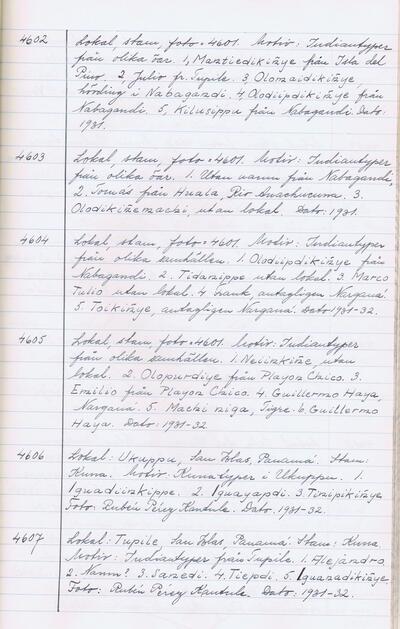 4602 Lokal, stam, foto = 4601. Motiv: Indiantyper
från olika öar. 1, Mastiedikiñye från Isla del
Pino. 2, Julio fr. Tupile. 3, Olonaidikiñye
hövding i Nabagandi. 4, Olodiipdikiñye från
Nabagandi. 5, Kilusippu från Nabagandi. Dato:
1931.
4603 Lokal, stam, foto = 4601. Motiv: Indiantyper
från olika öar. 1. Utan namn från Nabagandi,
2. Tomás från Huala, Rio Anachucuna. 3.
Olodikiñemachi, utan lokal. Dato: 1931.
4604 Lokal, stam, foto = 4601. Motiv: Indiantyper
från olika samhällen. 1. Olodiipdikiñye från
Nabagandi. 2. Tidanippe utan lokal. 3. Marco
Tulio utan lokal. 4. Frank, antagligen Narganá.
5. Toikiñye, antagligen Narganá. Dato 1931-32.
4605 Lokal, stam, foto = 4601. Motiv: Indiantyper
från olika samhällen. 1. Neiinkiñe, utan
lokal. 2. Olopurdiye från Playon Chico. 3.
Emilio från Playon Chico. 4. Guillermo Haya,
Narganá. 5. Machi niga, Tigre. 6. Guillermo
Haya. Dato: 1931-32
4606 Lokal: Ukuppu, San Blas, Panamá. Stam:
Kuna. Motiv: Kunatyper i Ukuppu. 1.
Iguadiinkippe. 2. Iguayapdi. 3. Tinipikiñye
Foto: Rubén Pérez Kantule. Dato: 1931-32.
4607 Lokal: Tupile, San Blas Panamá. Stam: Kuna
Motiv: Indiantyper från Tupile. 1. Alejandro
2. Namn? 3. Sanedi. 4. Tiepdi. 5. Iguanadikiñye.
Foto: Rubén Pérez Kantule. Dato: 1931-32.